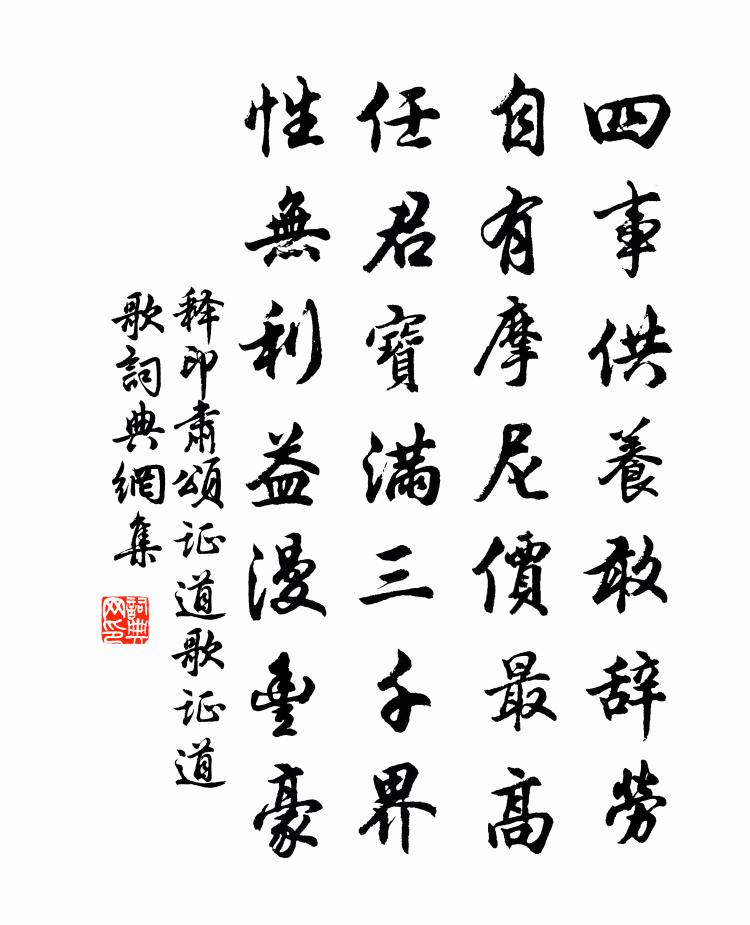 四事供養敢辞勞
自有摩尼價最高
任君寶滿三千界
性無利益漫豐豪
释印肃頌证道歌证道
歌詞典網集
詞典
网印